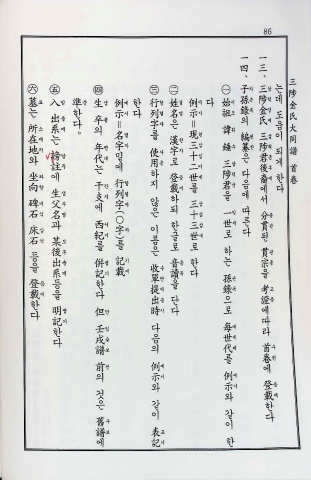 86
三陟金氏大同譜 首卷
는데 도움이 되게 한다
一三、三陟金氏 三陟君後裔에서 分貫된 貫宗을 考證에따라 首卷에 登載한다
一四、子孫錄의 編纂은 다음에 따른다
㊀ 始祖諱 三陟君을 一世로 하는 孫錄으로 每世代를 例示와 같이 한
다
例示=現三十二世를 三十三世로 한다
㊁ 姓名은 漢字로 登載하되 한글로 音讀을 단다
㊂ 行列字를 使用하지 않은 이름은 收單提出時 다음의 例示와 같이 表記
한다
例示=名字밑에 行列字(○字)를 記載
㊃ 生卒의 年代는 干支에 西紀를 倂記한다 但 壬戌譜 前의 것은 舊譜에
準한다。
㊄ 入 出系는 傍註에 生父名과 某後出系등을 明記한다
㊅ 墓는 所在地와 坐向 碑石 床石 등을 登載한다